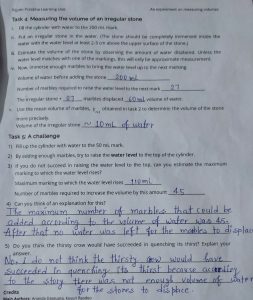 Vigyan Pratibha Learning Unit An experiment on measuring volumes
Task 4: Measuring the volume of an irregular stone
i. Fill the cylinder with water to the 200 mL mark.
ii. Put an irregular stone in the water. (The stone should be completely immersed inside the
water with the water level at least 2-3 cm above the upper surface of the stone.)
iii. Estimate the volume of the stone by observing the amount of water displaced. Unless the
water level matches with one of the markings, this will only be approximate measurement.
iv. Now, immerse enough marbles to bring the water level up to the next marking.
Volume of water before adding the stone 200 ml
Number of marbles required to raise the water level to the next mark 27
The irregular stone + 27 marbles displaced 60 ml volume of water.
v. Use the mean volume of marbles, obtained in task 2 to determine the volume of the stone
more precisely.
Volume of the irregular stone ~ 10 mL of water
Task 5: A challenge
1) Fill up the cylinder with water to the 50 mL mark.
2) By adding enough marbles, try to raise the water level to the top of the cylinder.
3) If you do not succeed in raising the water level to the top, can you estimate the maximum
marking to which the water level rises?
Maximum marking to which the water level rises 110 ml
Number of marbles required to increase the volume by this amount 45
4) Can you think of an explanation for this?
The maximum number of marbles that could be
added according to the volume of water was this.
After that no water was left for the marbles to displace
5) Do you think the thirsty crow would have succeeded in quenching its thirst? Explain your
answer.
No, I do not think the thirsty crow would have
succeeded in quenching its thirst because according
to the story there was not enough volume of water
for the stones to displace.
Credits
Main Authors: